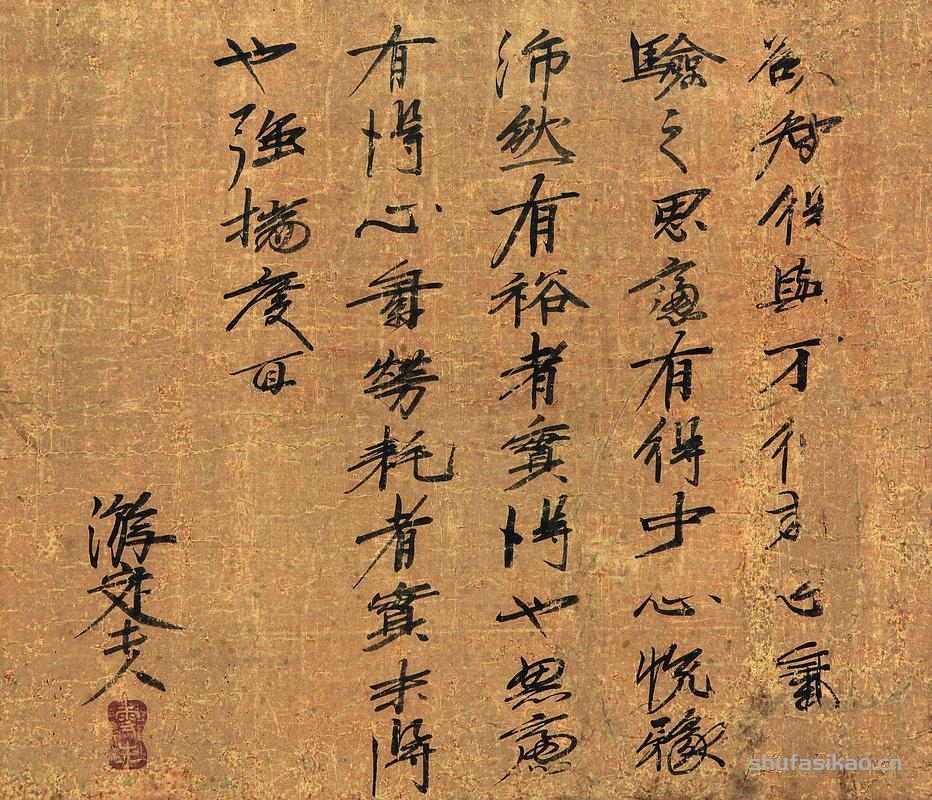 欲智得與不得於心氣
驗之思慮有得中心悅豫
沛然有裕者實得也思慮
有得心氣勞耗者實未得
也強揣度耳
游定夫
shufasikao.cn